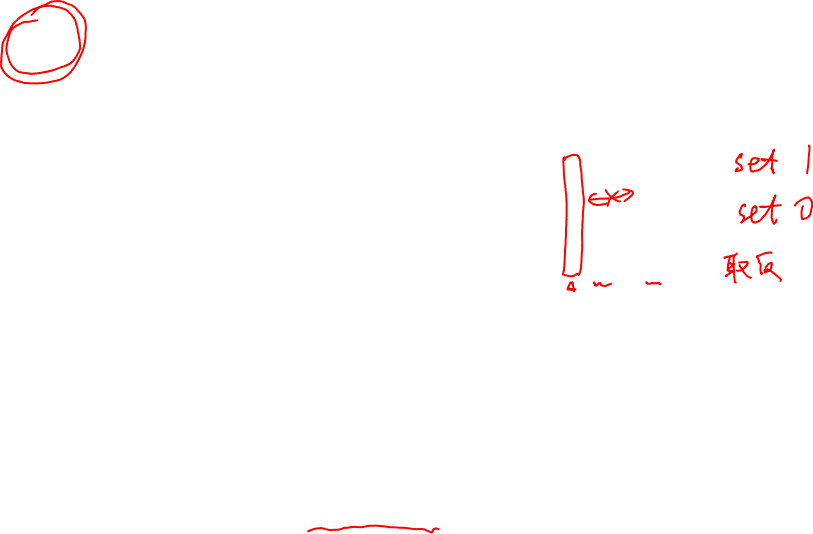 set 1
set 0
取反